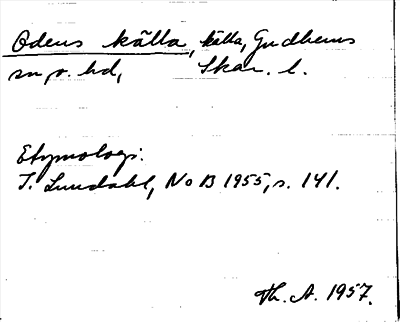 Odens källa, källa, Gudhems
sn, o. hd, Skar. l.
Etymologi:
I. Lundahl, NoB 1955, s. 141.
Th. A. 1957.